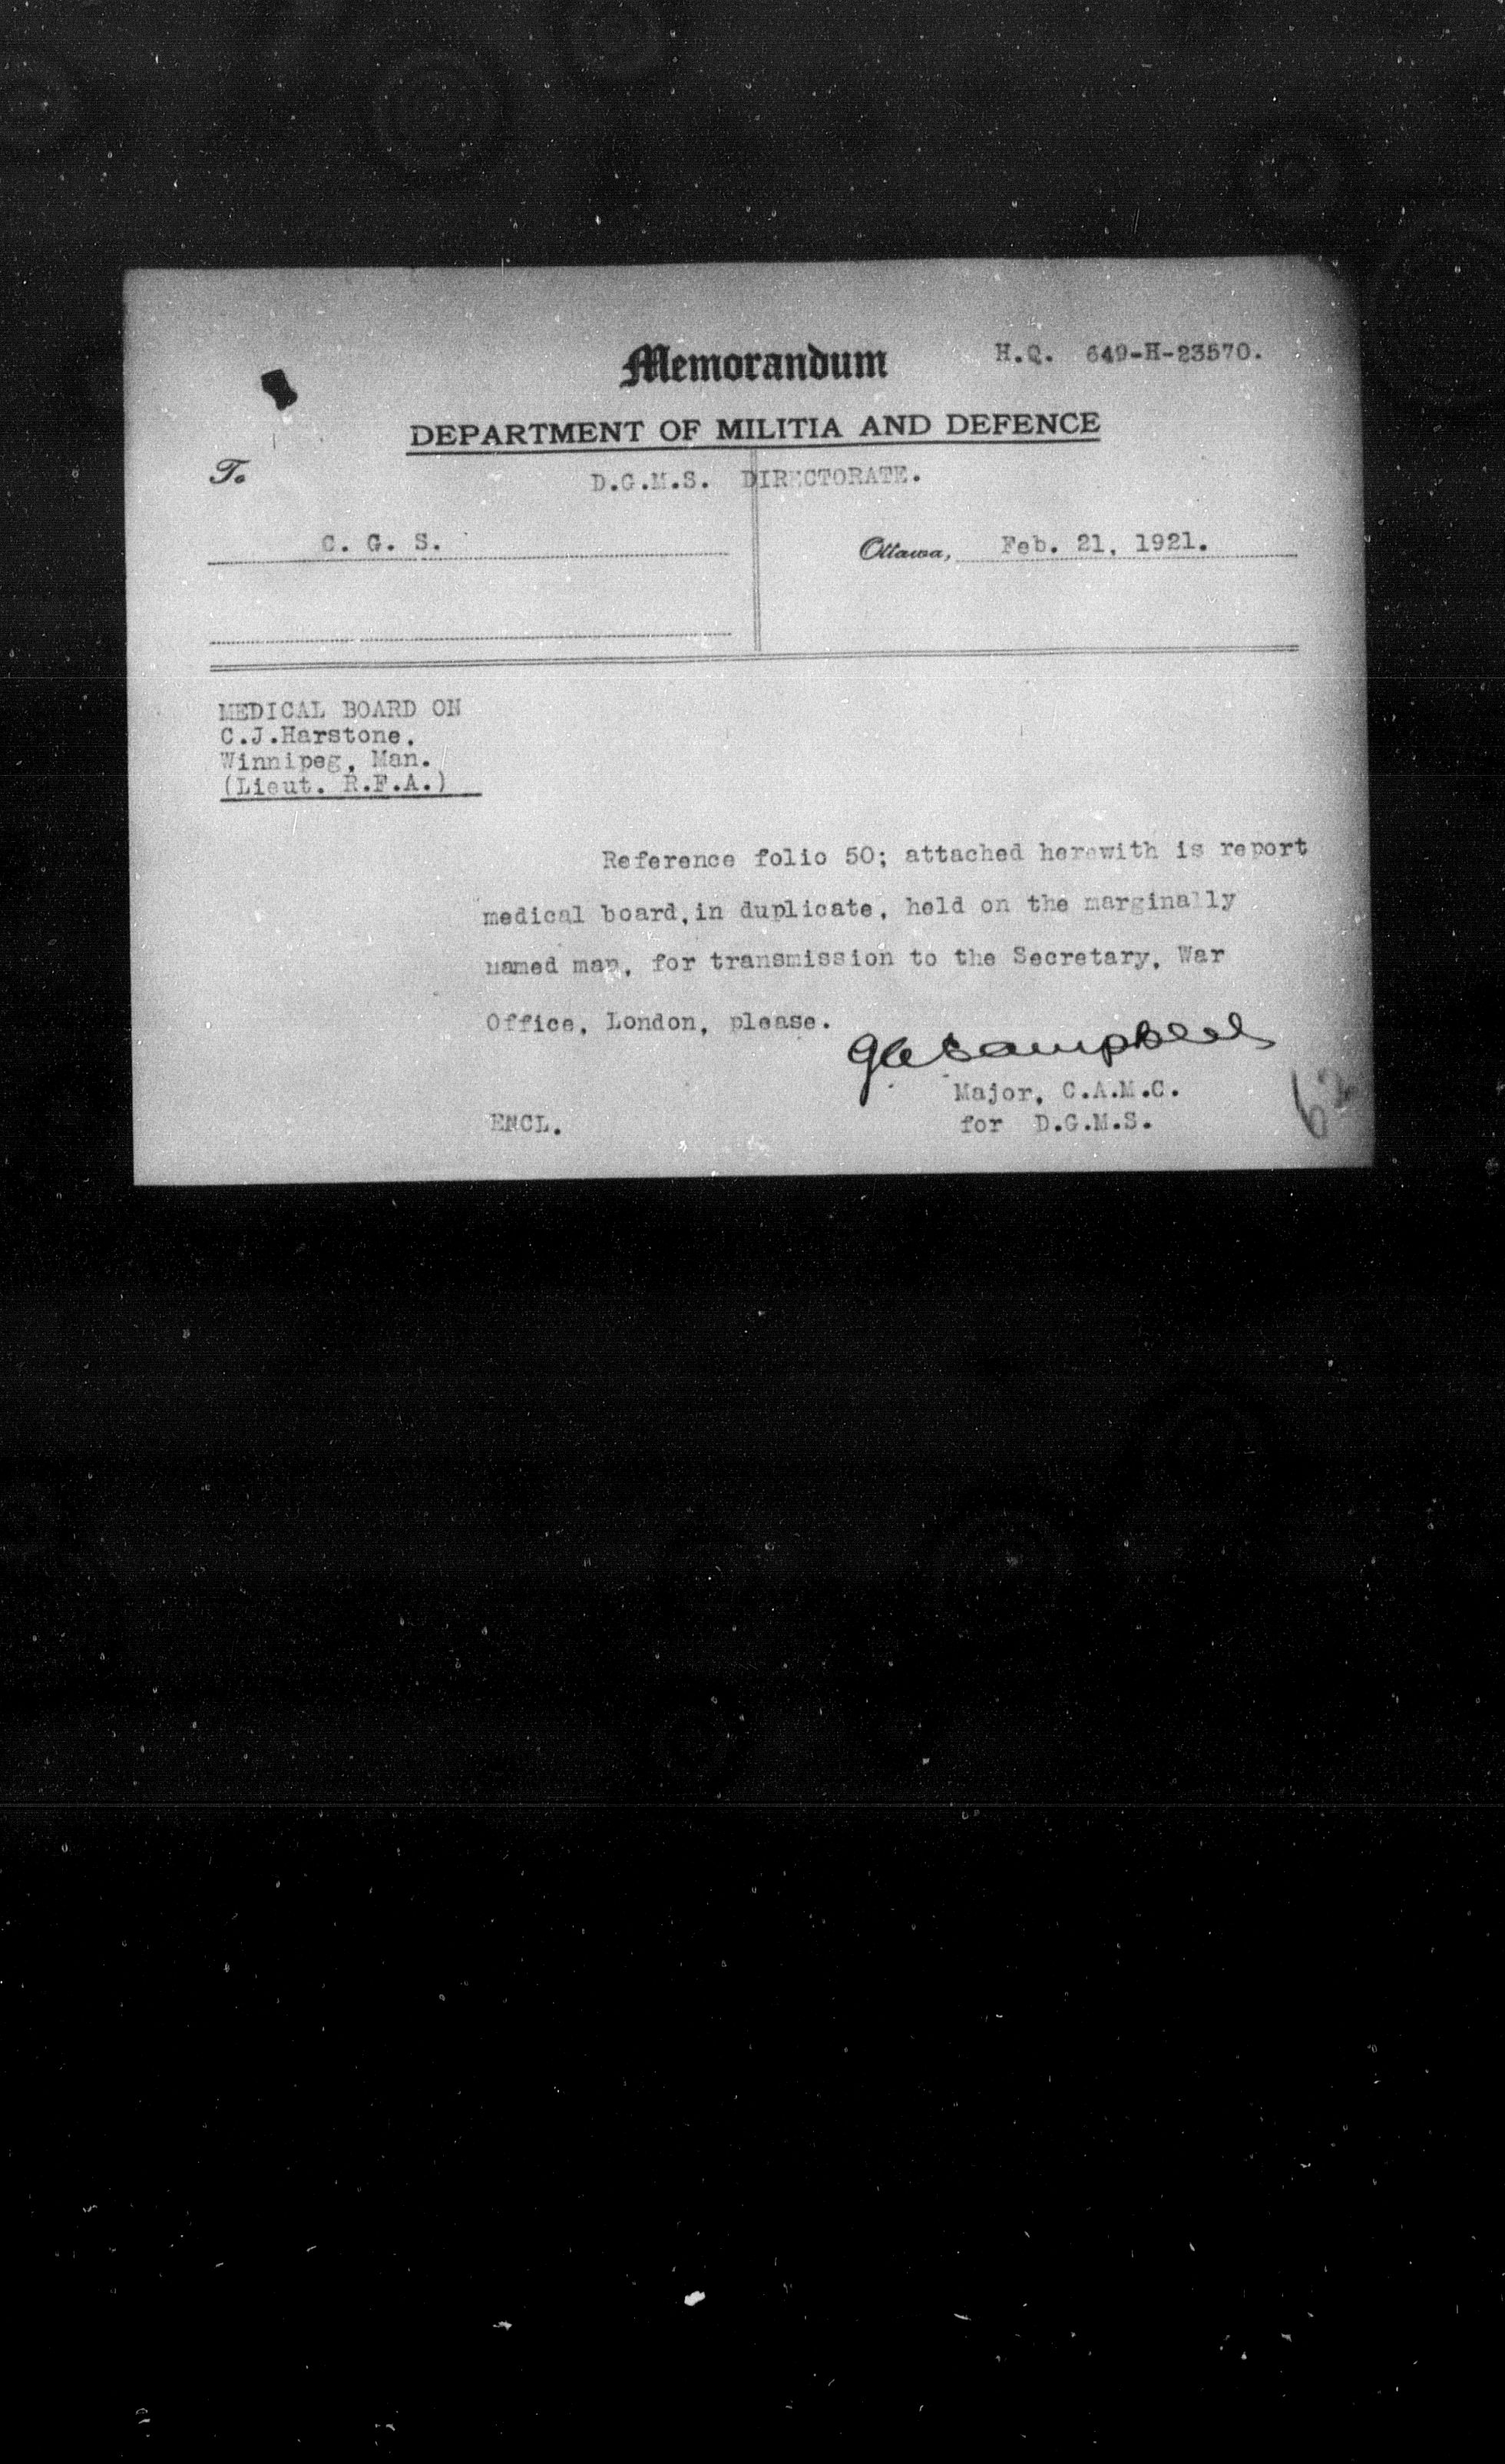 Memorandum
H.Q. 649-H-23570.
DEPARTMENT OF MILITIA AND DEFENCE
To
D.G.M.S. DIRECTORATE.
C. G. S.
Ottawa, Feb. 21, 1921.
MEDICAL BOARD ON
C.J.Harstone,
Winnipeg, Man.
(Lieut. R.F.A.)
Reference folio 50; attached herewith is report
medical board,in duplicate, held on the marginally
named man, for transmission to the Secretary, War
Office, London, please.
Campbell
Major, C.A.M.C.
ENCL.
for D.G.M.S.